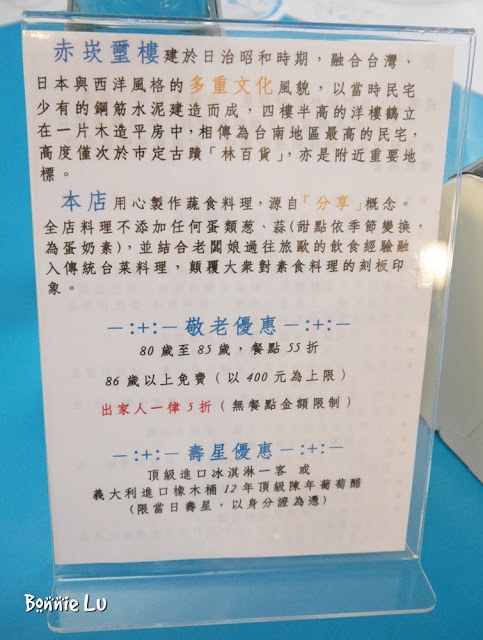 赤崁璽樓建於日治昭和時期，融合台灣、
日本與西洋風格的多重文化風貌，以當時民宅
少有的鋼筋水泥建造而成，四樓半高的洋樓鶴立
在一片木造平房中，相傳為台南地區最高的民宅，
高度僅次於市定古蹟「林百貨」，亦是附近重要地
標。
本店用心製作蔬食料理，源自「分享」概念。
全店料理不添加任何蛋類葱、蒜(甜點依季節變換，
為蛋奶素)，並結合老闆娘過往旅歐的飲食經驗融
入傳統台菜料理，顛覆大衆對素食料理的刻板印
象。
－:+:－敬老優惠－:+:－
80歲至85歲，餐點55折
86歲以上免費（以400元為上限）
出家人一律5折（無餐點金額限制）
－:+:－壽星優惠－:+:－
頂級進口冰淇淋一客 或
義大利進口橡木桶12年頂級陳年葡萄醋
(限當日壽星，以身分證為憑)
Bonnie Lu